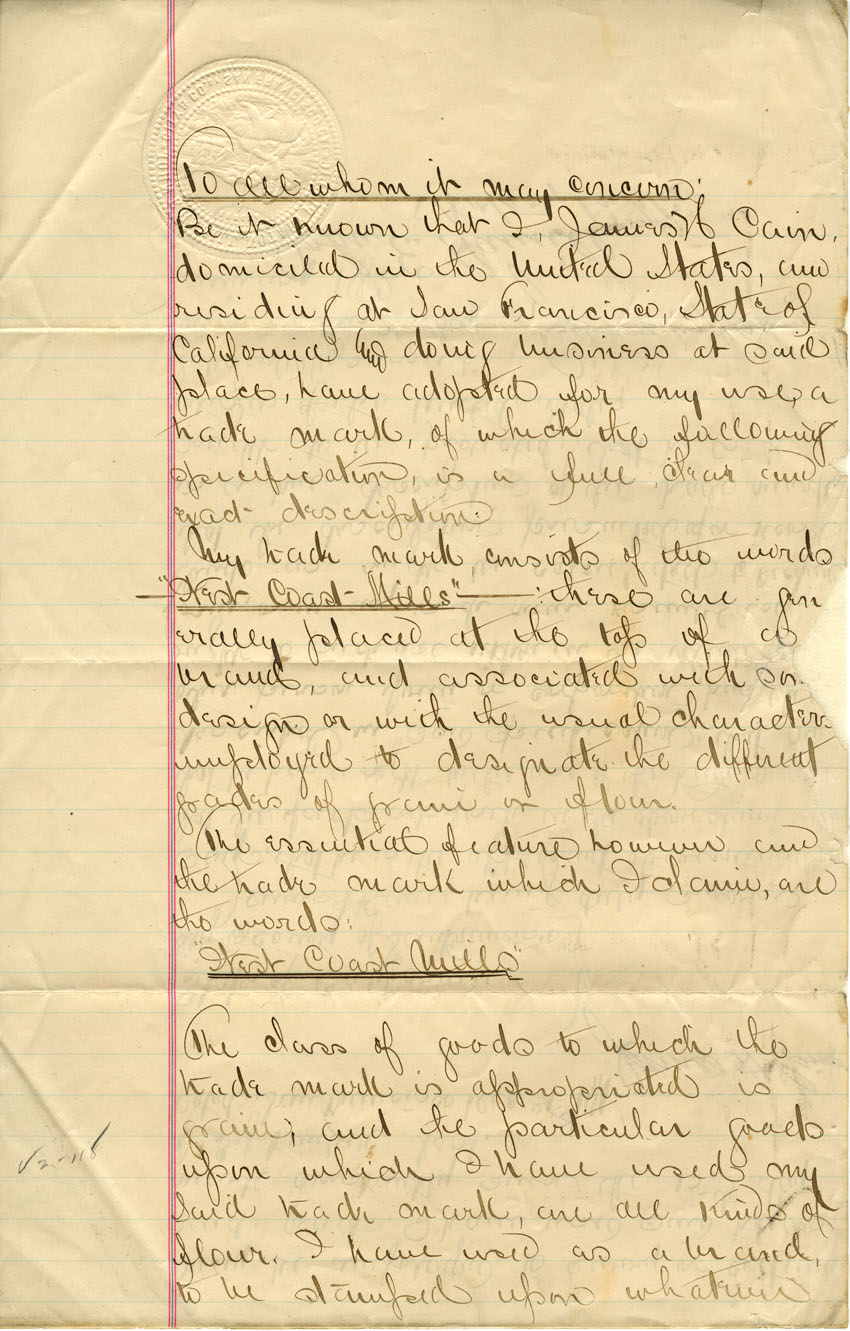 To all whom it may concern:
Be it known that I, James H Cain,
domiciled in the United States, and
residing at San Francisco, State of
California and doing business at said
place, have adopted for my use, a
trade mark, of which the following
specification, is a full, clear and
exact description:
My trade mark, consists of the words
"West Coast Mills" : these are gen
erally placed at the top of a
brand, and associated with som
design or with the usual characters
employed to designate the different
grades of grain or flour.
The essential feature however and
the trade mark which I claim, are
the words:
"West Coast Mills"
The class of goods to which the
trade mark is appropriated is
grain, and the particular goods
upon which I have used my
said trade mark, are all kinds of
flour. I have used as a brand,
to be stamped upon whatever